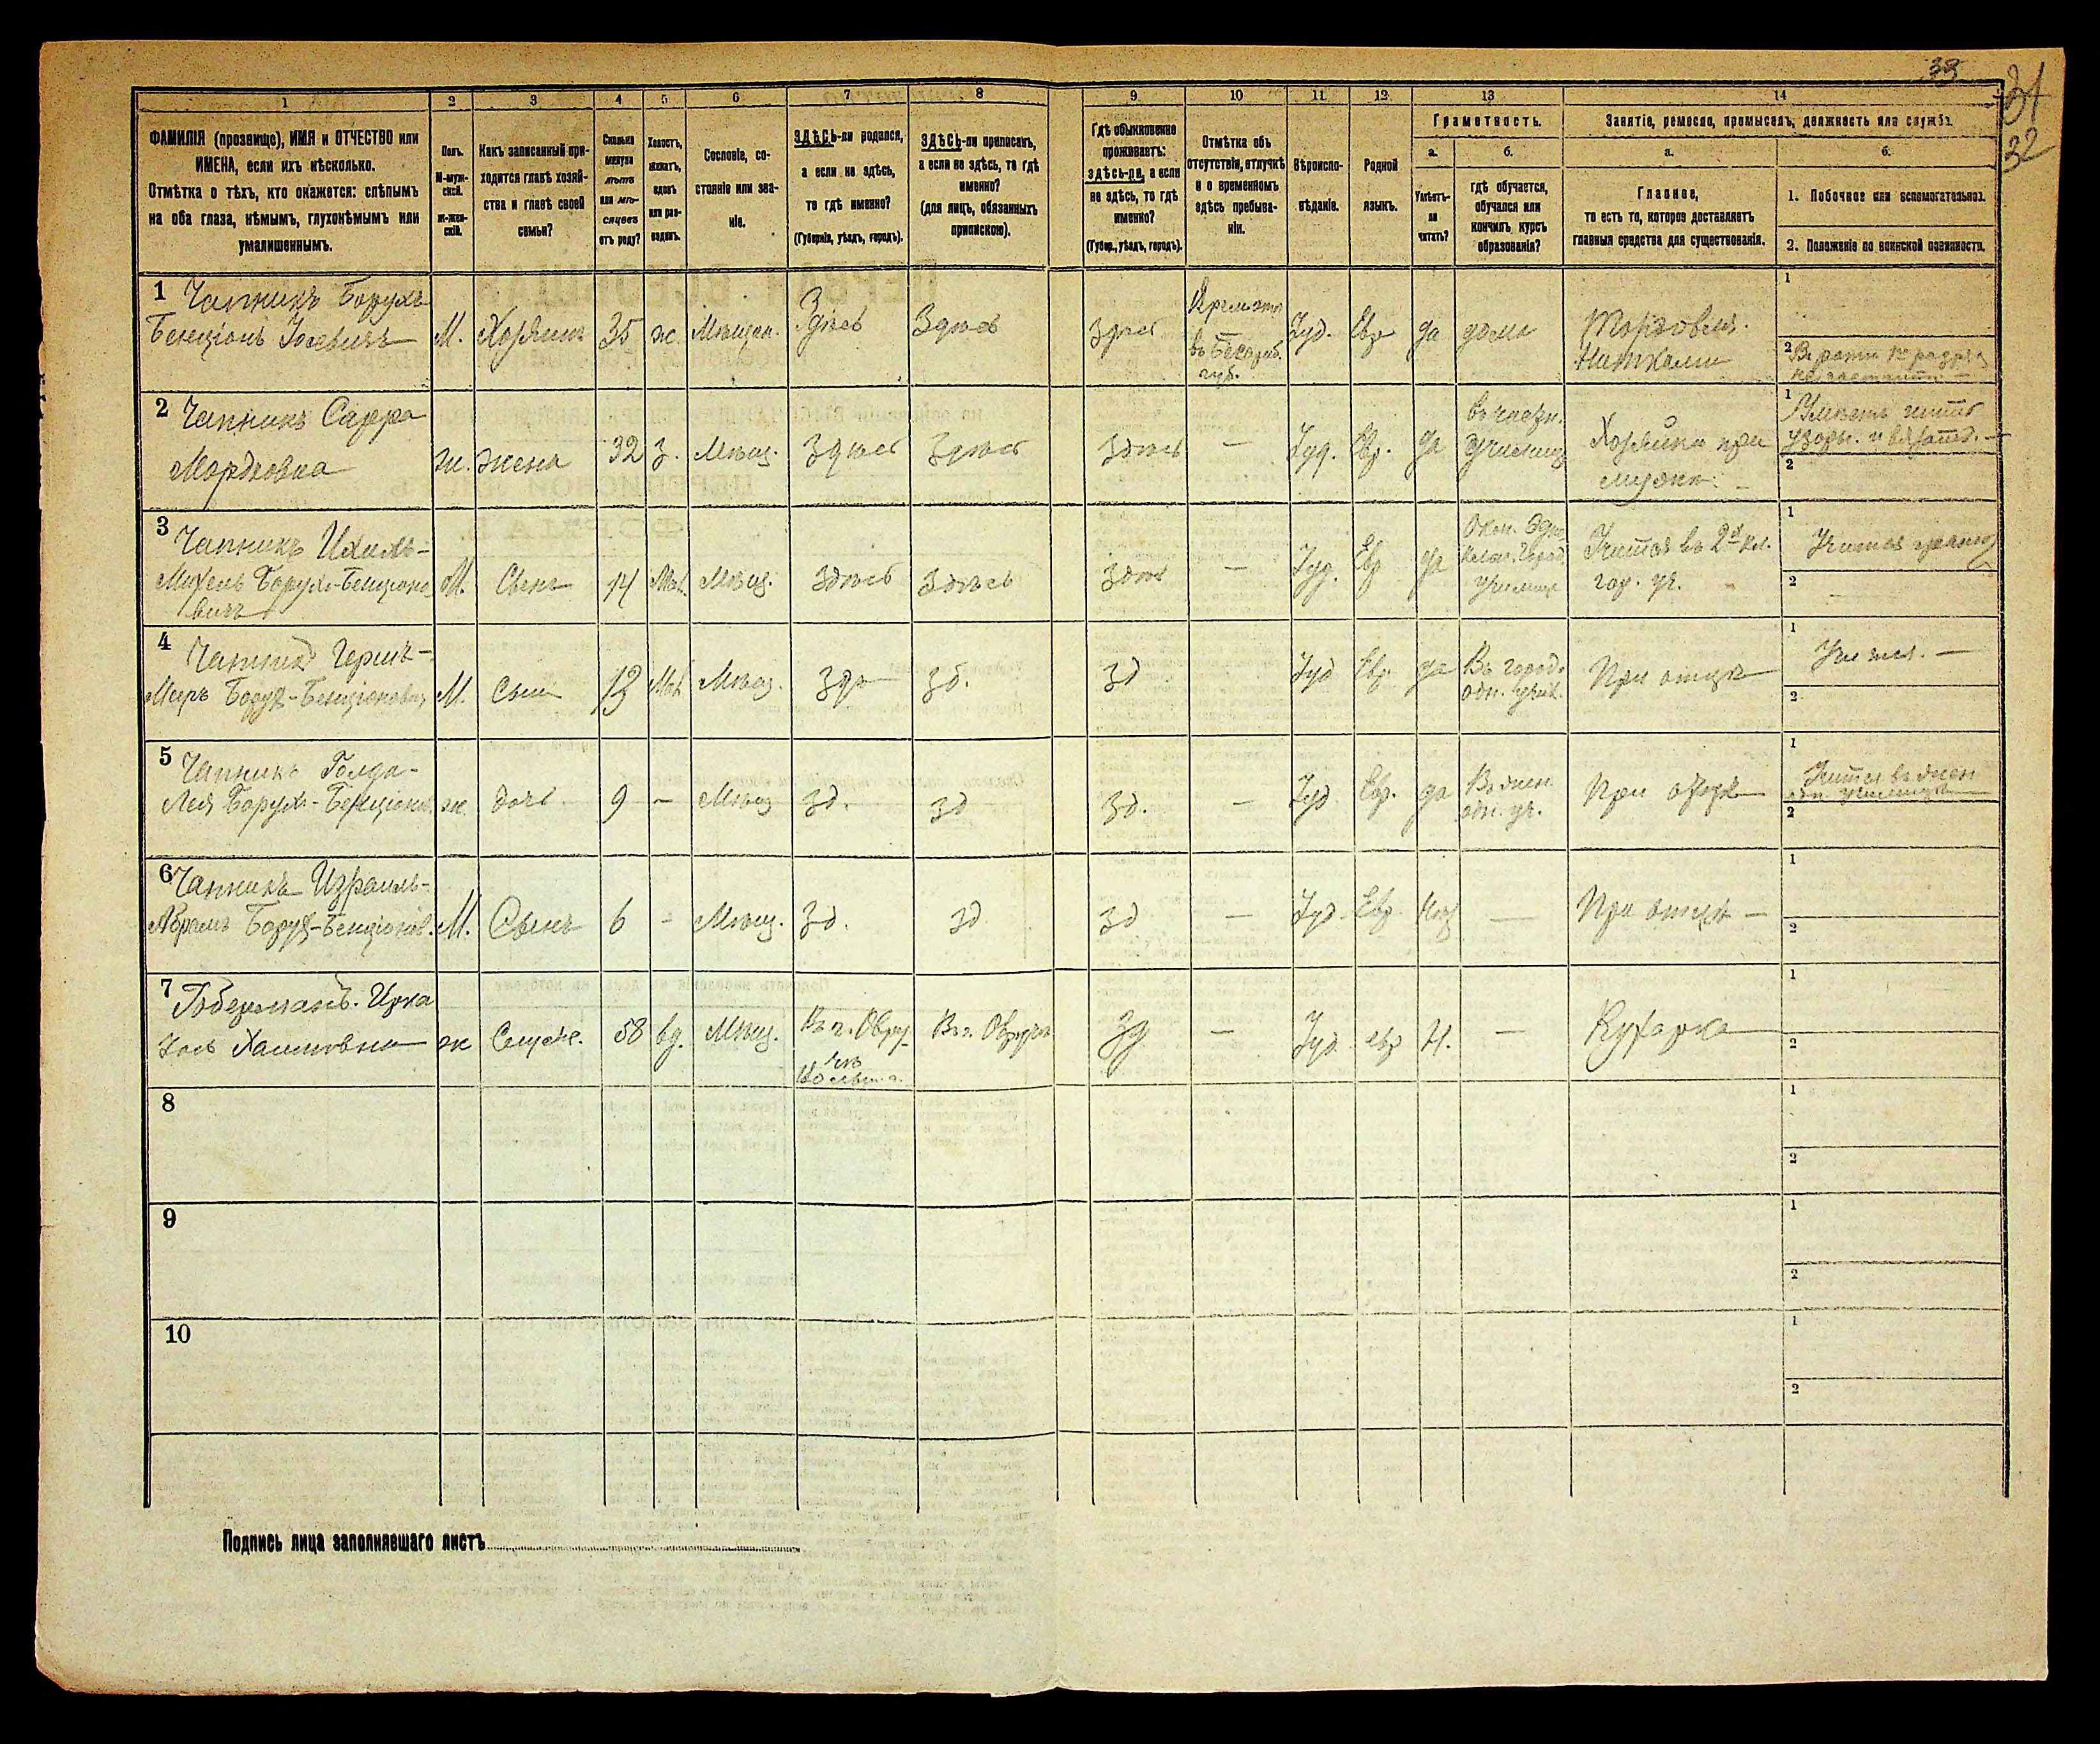 33
31
32
1 2 3 4 5 6 7 8 9 10 11 12 13 14
ФАМИЛІЯ (прозвище), ИМЯ и ОТЧЕСТВО или
ИМЕНА, если ихъ нѣсколько.
Отмѣтка о тѣхъ, кто окажется: слѣпымъ
на оба глаза, нѣмымъ, глухонѣмымъ или
умалишеннымъ.
Полъ.
М-муж-
ской.
ж-жен-
скій.
Какъ записанный при-
ходится главѣ хозяй-
ства и главѣ своей
семьи?
Сколько
минуло
лѣтъ
или мѣ-
сяцевъ
отъ роду?
Холостъ,
женатъ,
вдовъ
или раз-
веденъ.
Сословіе, со-
стояніе или зва-
ніе.
ЗДѢСЬ-ли родился,
а если не здѣсь,
то гдѣ именно?
(Губернія, уѣздъ, городъ).
ЗДѢСЬ-ли приписанъ,
а если не здѣсь, то гдѣ
именно?
(для лицъ, обязанныхъ
припискою).
Гдѣ обыкновенно
проживаетъ:
здѣсь-ли, а если
не здѣсь, то гдѣ
именно?
(Губер., уѣздъ, городъ).
Отмѣтка объ
отсутствіи, отлучкѣ
и о временномъ
здѣсь пребыва-
ніи.
Вѣроиспо-
вѣданіе.
Родной
языкъ.
Грамотность.
а.
Умѣетъ-
ли
читать?
б.
гдѣ обучается,
обучался или
кончилъ курсъ
образованія?
Занятіе, ремесло, промыселъ, должность или служба.
а.
Главное,
то есть то, которое доставляетъ
главныя средства для существованія.
б.
1. Побочное или вспомогательное.
2. Положеніе по воинской повинности.
1 Чапникъ Борухъ
Бенціонъ М. Хозяинъ 35 ж. Мѣщан. Здѣсь Здѣсь здѣсь
въ Бессараб.
губ.
Іуд. Евр да дома Торговля
нитками
1
2
2 Чапникъ Сарра
Мордковна ж. жена 32 з. Мѣщ. Здѣсь Здѣсь Здѣсь — Іуд. Евр. да
въ частн.
училищ
Хозяйка при
мужѣ
1
2
3 Чапникъ Ихиль-
Михель Борухъ-Бенціоно
вичъ М. Сынъ 14 Мѣщ. Здѣсь Здѣсь Здѣсь — Іуд. Евр да
училищ
Учится въ 2й кл.
гор. уч.
1
2
4 Чапникъ Герш-
Мееръ Борух-Бенціонович М. Сынъ 13 Мѣщ. зд. зд Іуд Евр. да Въ город.
одн. учил.
При отцѣ
1
2
5 Чапникъ Голда-
Лея Борухъ-Бенціонов. ж. дочь 9 — Мѣщ зд. зд зд. — Іуд Евр. да
одн. уч.
При отцѣ
1
2
6 Чапникъ Израиль-
Абрамъ Борух-Бенціонов. М. Сынъ 6 - Мѣщ. зд. зд зд — Іуд. Евр. — При отцѣ —
1
2
7
Хаимовна ж 58 вд. Мѣщ. Въ г. Овру-
чѣ
Въ г. Овручѣ зд — Іуд. евр Н. — Кухарка
1
2
8
1
2
9
1
2
10
1
2
Подпись лица заполнявшаго листъ